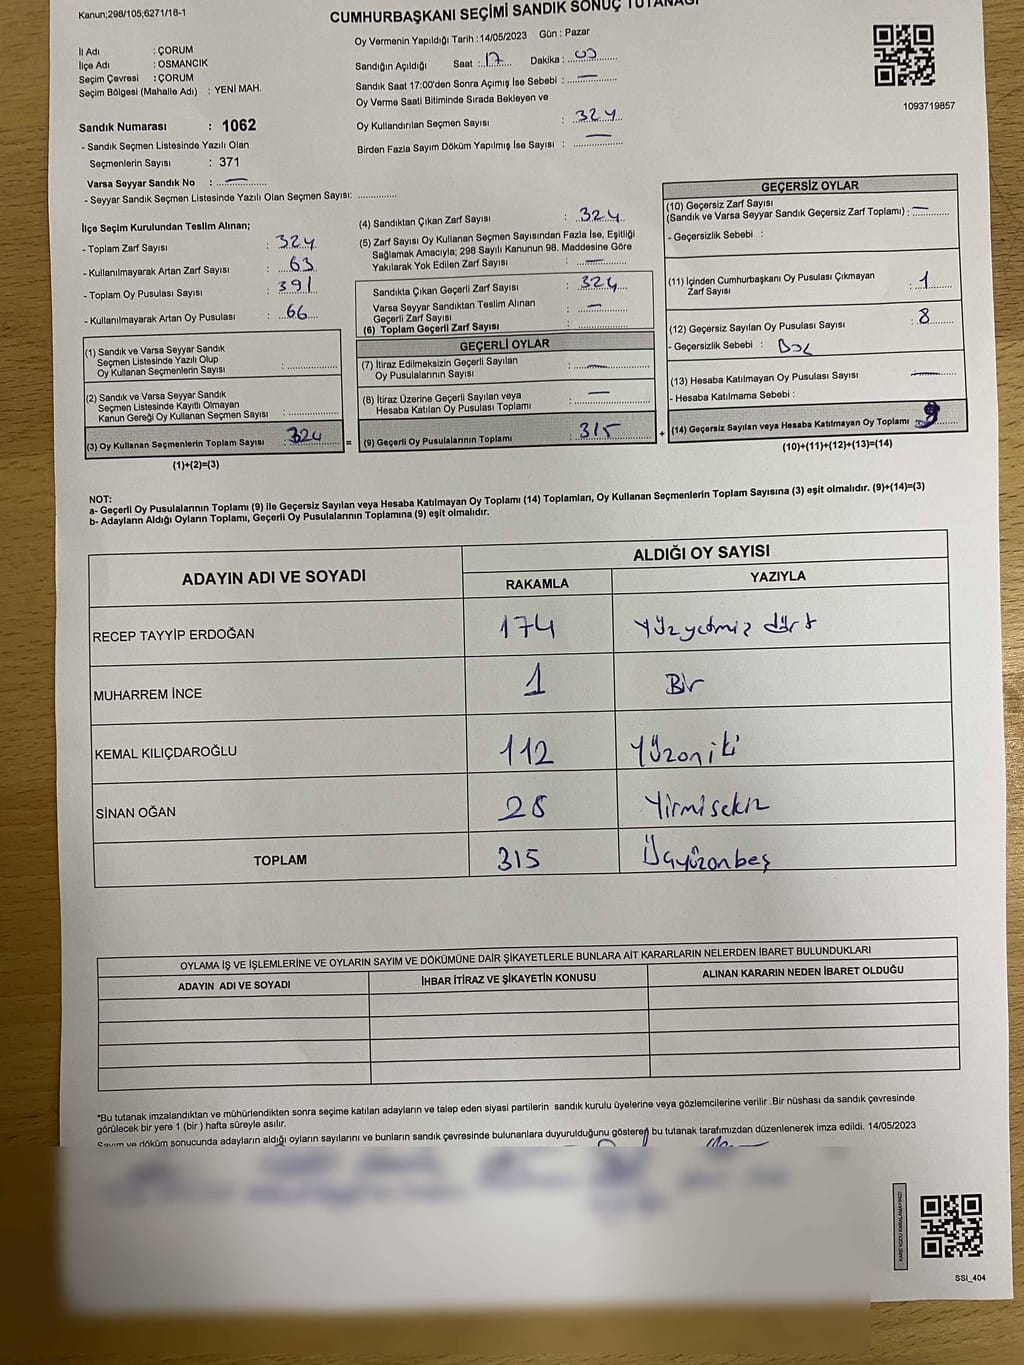 Kanun;298/105;6271/18-1
CUMHURBAŞKANI SEÇİMİ SANDIK SONUÇ TUTANAĞI
İl Adı : ÇORUM
İlçe Adı : OSMANCIK
Seçim Çevresi : ÇORUM
Seçim Bölgesi (Mahalle Adı) : YENİ MAH.
Oy Vermenin Yapıldığı Tarih :14/05/2023 Gün : Pazar
Sandığın Açıldığı Saat :..17.... Dakika :..03...
Sandık Saat 17:00'den Sonra Açımış İse Sebebi : —
Oy Verme Saati Bitiminde Sırada Bekleyen ve
Oy Kullandırılan Seçmen Sayısı : 324
Birden Fazla Sayım Döküm Yapılmış İse Sayısı : —
1093719857
Sandık Numarası : 1062
- Sandık Seçmen Listesinde Yazılı Olan
Seçmenlerin Sayısı : 371
Varsa Seyyar Sandık No : —
- Seyyar Sandık Seçmen Listesinde Yazılı Olan Seçmen Sayısı: ..............
İlçe Seçim Kurulundan Teslim Alınan;
- Toplam Zarf Sayısı : 324
- Kullanılmayarak Artan Zarf Sayısı : 63
- Toplam Oy Pusulası Sayısı : 391
- Kullanılmayarak Artan Oy Pusulası : 66
(1) Sandık ve Varsa Seyyar Sandık
Seçmen Listesinde Yazılı Olup
Oy Kullanan Seçmenlerin Sayısı : ..............
(2) Sandık ve Varsa Seyyar Sandık
Seçmen Listesinde Kayıtlı Olmayan
Kanun Gereği Oy Kullanan Seçmen Sayısı : ..............
(3) Oy Kullanan Seçmenlerin Toplam Sayısı : 324 =
(1)+(2)=(3)
(4) Sandıktan Çıkan Zarf Sayısı : 324
(5) Zarf Sayısı Oy Kullanan Seçmen Sayısından Fazla İse, Eşitliği
Sağlamak Amacıyla; 298 Sayılı Kanunun 98. Maddesine Göre
Yakılarak Yok Edilen Zarf Sayısı : —
Sandıkta Çıkan Geçerli Zarf Sayısı : 324
Varsa Seyyar Sandıktan Teslim Alınan
Geçerli Zarf Sayısı : —
(6) Toplam Geçerli Zarf Sayısı : ..............
GEÇERLİ OYLAR
(7) İtiraz Edilmeksizin Geçerli Sayılan
Oy Pusulalarının Sayısı : —
(8) İtiraz Üzerine Geçerli Sayılan veya
Hesaba Katılan Oy Pusulaları Toplamı : —
(9) Geçerli Oy Pusulalarının Toplamı : 315 +
GEÇERSİZ OYLAR
(10) Geçersiz Zarf Sayısı
(Sandık ve Varsa Seyyar Sandık Geçersiz Zarf Toplamı) : —
- Geçersizlik Sebebi :
(11) İçinden Cumhurbaşkanı Oy Pusulası Çıkmayan
Zarf Sayısı : 1
(12) Geçersiz Sayılan Oy Pusulası Sayısı : 8
- Geçersizlik Sebebi :
(13) Hesaba Katılmayan Oy Pusulası Sayısı : —
- Hesaba Katılmama Sebebi :
(14) Geçersiz Sayılan veya Hesaba Katılmayan Oy Toplamı 9
(10)+(11)+(12)+(13)=(14)
NOT:
a- Geçerli Oy Pusulalarının Toplamı (9) ile Geçersiz Sayılan veya Hesaba Katılmayan Oy Toplamı (14) Toplamları, Oy Kullanan Seçmenlerin Toplam Sayısına (3) eşit olmalıdır. (9)+(14)=(3)
b- Adayların Aldığı Oyların Toplamı, Geçerli Oy Pusulalarının Toplamına (9) eşit olmalıdır.
ADAYIN ADI VE SOYADI
ALDIĞI OY SAYISI
RAKAMLA YAZIYLA
RECEP TAYYİP ERDOĞAN 174 Yüzyetmiz dört
MUHARREM İNCE 1 Bir
KEMAL KILIÇDAROĞLU 112 Yüzoniki
SİNAN OĞAN 28 Yirmisekiz
TOPLAM 315 Üçyüzonbeş
OYLAMA İŞ VE İŞLEMLERİNE VE OYLARIN SAYIM VE DÖKÜMÜNE DAİR ŞİKAYETLERLE BUNLARA AİT KARARLARIN NELERDEN İBARET BULUNDUKLARI
ADAYIN ADI VE SOYADI İHBAR İTİRAZ VE ŞİKAYETİN KONUSU ALINAN KARARIN NEDEN İBARET OLDUĞU
*Bu tutanak imzalandıktan ve mühürlendikten sonra seçime katılan adayların ve talep eden siyasi partilerin sandık kurulu üyelerine veya gözlemcilerine verilir .Bir nüshası da sandık çevresinde
görülecek bir yere 1 (bir ) hafta süreyle asılır.
Sayım ve döküm sonucunda adayların aldığı oyların sayılarını ve bunların sandık çevresinde bulunanlara duyurulduğunu gösteren bu tutanak tarafımızdan düzenlenerek imza edildi. 14/05/2023
KARE KODU KARALAMAYINIZ!
SSI_404